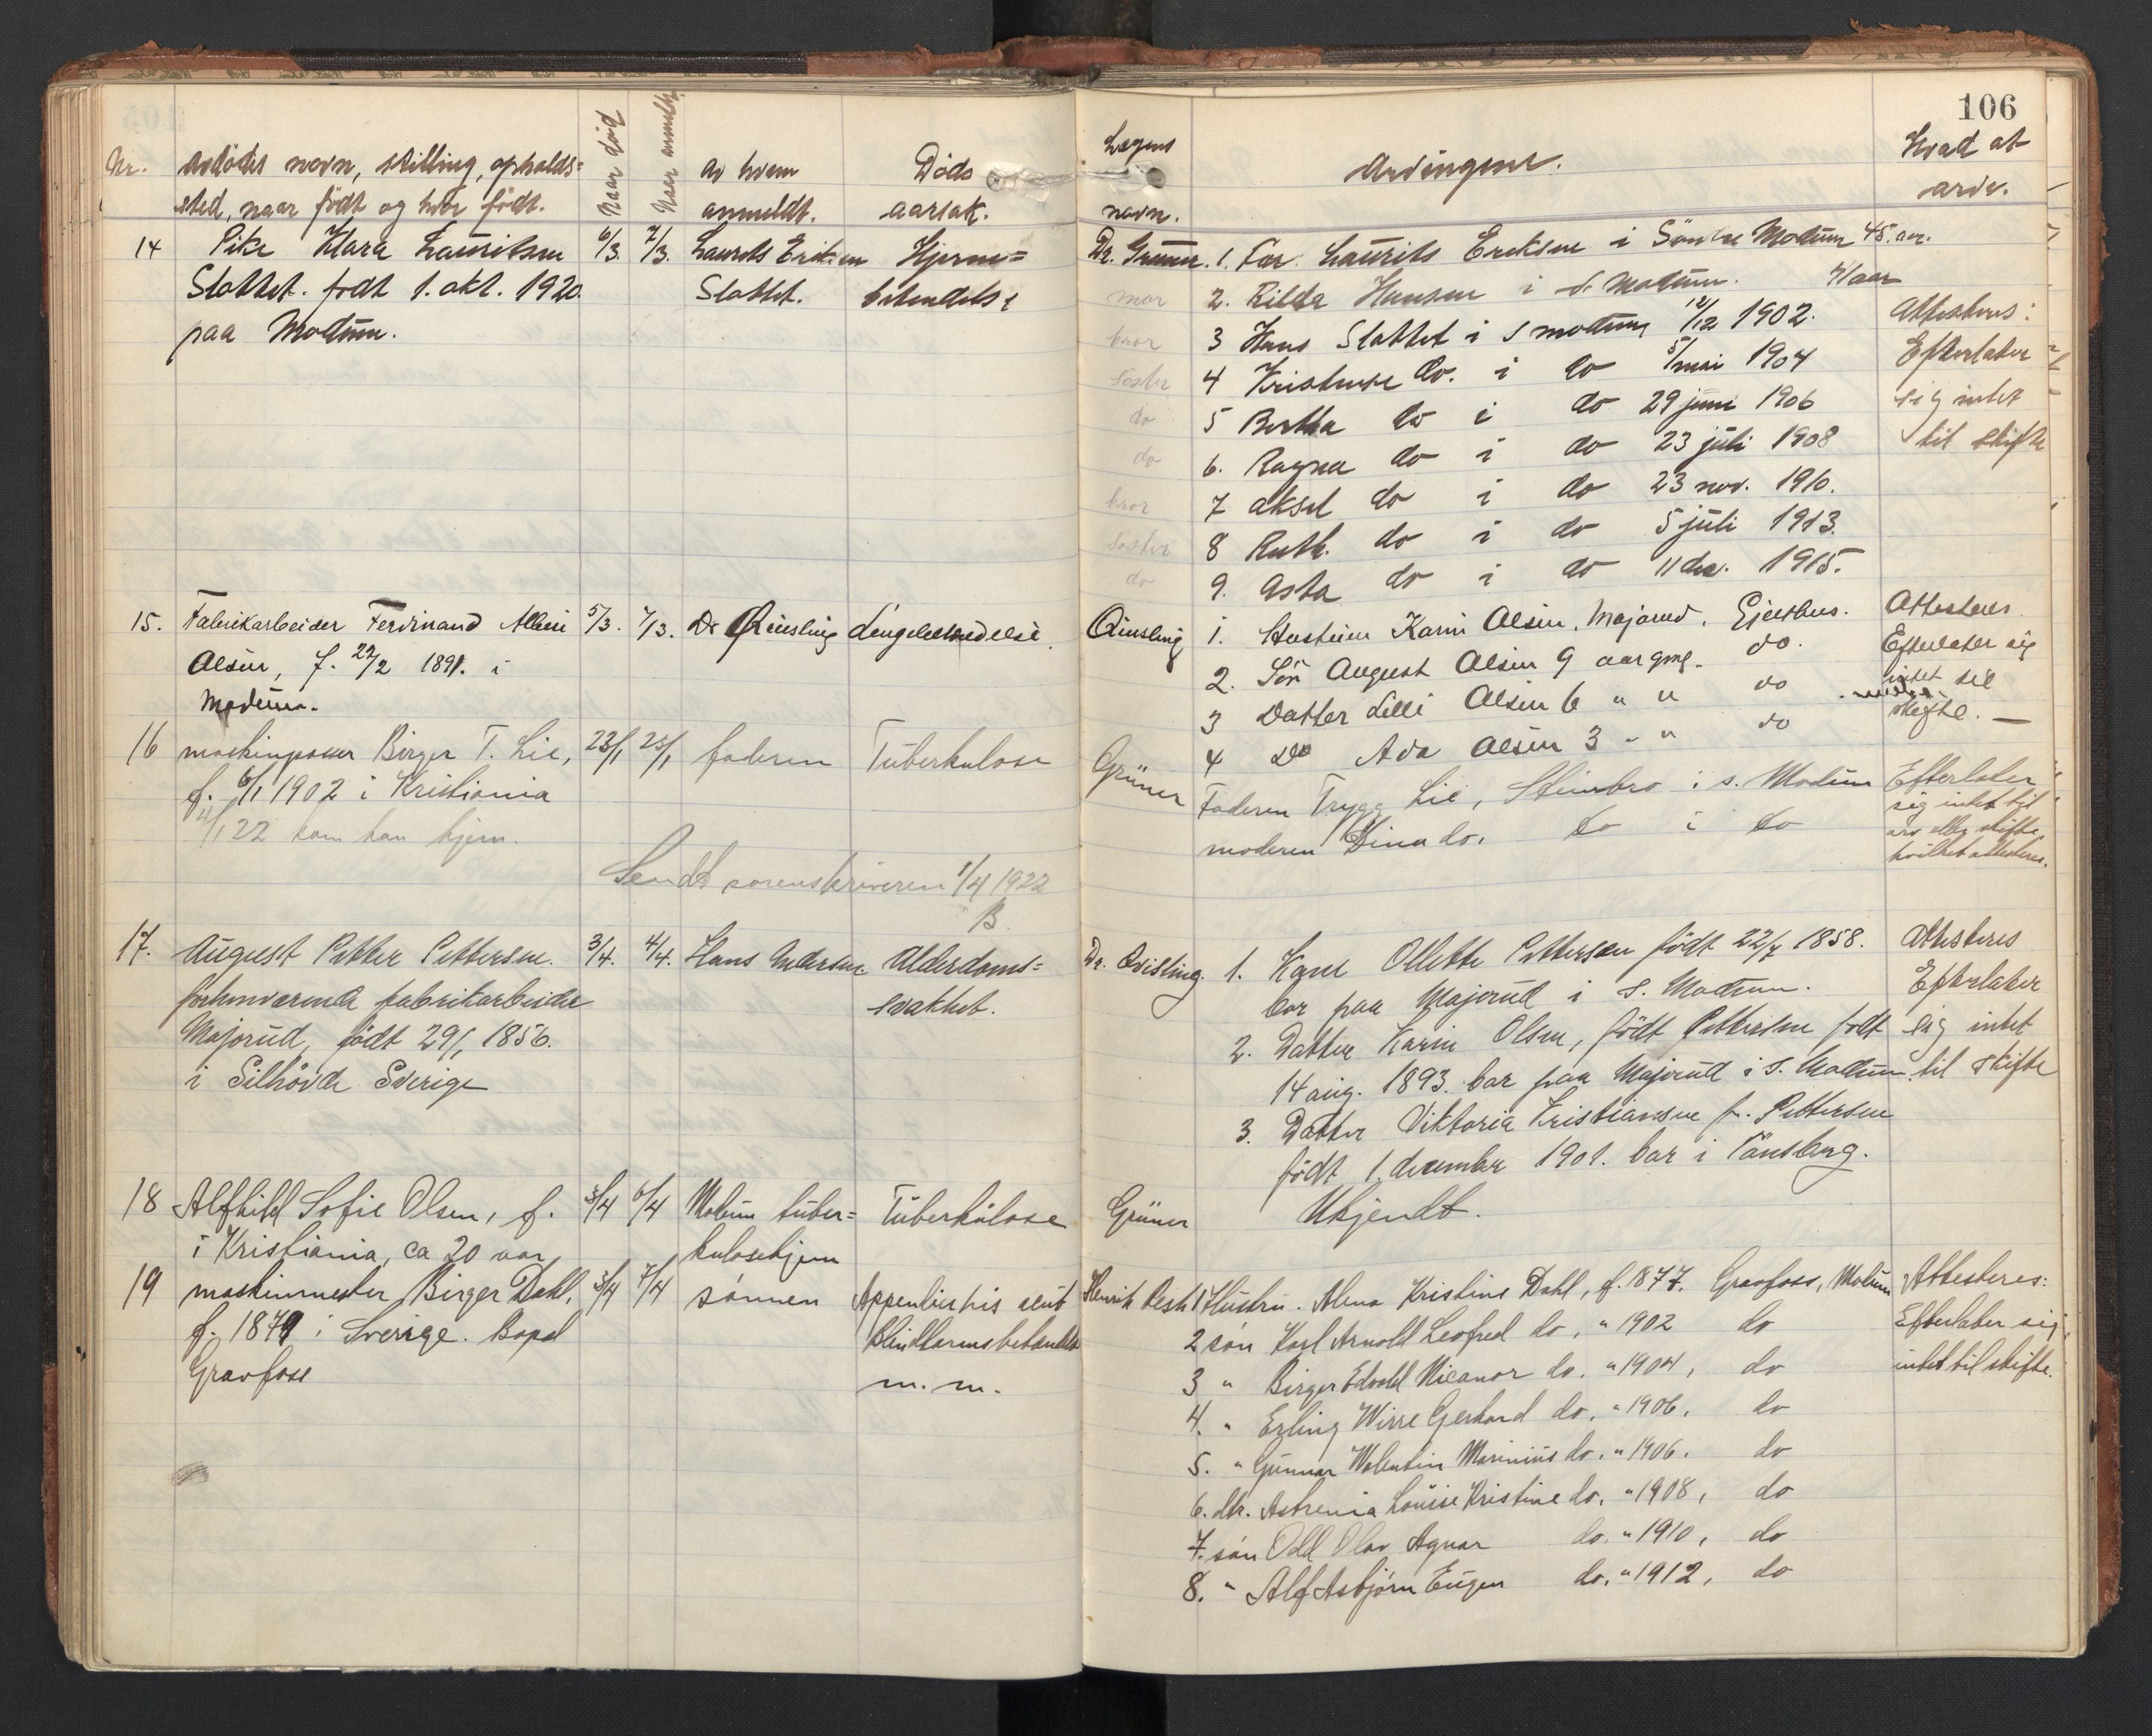 106
Nr.
avdødes navn, stilling, opholds=
sted, naar født og hvor født.
Naar død
Naar anmeldt
av hvem
anmeldt.
Døds
aarsak.
Lægens
navn.
Arvingene.
Hvad at
arve.
14 Pike Klara Lauritsen 6/3. 7/3. Laurits Eriksen Hjerne=
Slattet. født 1. okt. 1920. Slattet. betendelse
paa Modum.
Dr. Gruner. 1. Far. Laurits Eriksen i Søndre Modum 45. aar.
mor 2. Hansen i S. Modum. 41 aar
bror 3 Hans Slattet i S modum 12/12 1902.
søster 4 do. i do 5/mai 1904
do 5 Bertha do i do 29 juni 1906
do 6. Ragna do i do 23 juli 1908
bror 7 aksel do i do 23 nov. 1910.
søster 8 Ruth. do i do 5 juli 1913.
do 9. Asta do i do 11 des. 1915.
Attesteres:
Efterlater
sig intet
til skifte
15. Fabrikarbeider Ferdinand Albin 5/3. 7/3. Dr Qvisling Lungebetændelse.
Olsen, f. 22/2 1891. i
Modum.
Qvisling 1. Hustruen Karin Olsen, Majorud, Geithus.
2. Søn August Olsen 9 aar gml. do.
3 Datter Lilli Olsen 6 " " do
4 Do Ada Olsen 3 " " do
Attesteres
Efterlater sig
intet til
skifte. —
16 maskinpasser Birger T. Lie, 23/1 25/1 faderen Tuberkulose
f. 6/1 1902 i Kristiania
4/1 22 kom han hjem.
Grüner Faderen Trygg Lie, Steinbro i s. Modum
moderen Dina do. do i do
Efterlater
sig intet til
arv eller skifte,
hvilket attesteres.
Sendt sorenskriveren 1/4 1922
B.
17. August Petter Pettersen. 3/4. 4/4. Hans Andersen Alderdoms=
forhenværende fabrikarbeider svakhet.
Majorud, født 29/1 1856.
i Silhövda Sverige
Dr. Qvisling. 1. Kone Ollette Pettersen født 22/7 1858.
bor paa Majorud i S. Modum.
2. Datter Karin Olsen, født Pettersen født
14 aug. 1893. bor paa Majorud i S. Modum.
3. Datter Viktoria Kristiansen f. Pettersen
født 1. december 1901. bor i Tönsberg.
Attesteres
Efterlater
sig intet
til skifte
18 Alfhild Sofie Olsen, f. 3/4 6/4 Modum tuber= Tuberkulose
i Kristiania, ca 20 aar kulosehjem
Grüner Ukjendt.
19 maskinmester Birger Dahl, 3/4 7/4 sønnen Appendicitis acut
f. 1879 i Sverige. Bopel
Gravfoss
m. m.
Henrik 1 Hustru. Alma Kristine Dahl, f. 1877. Gravfoss, Modum
2 søn Karl Arnold Leofred do. " 1902 do
3 " Birger Edvald Nicanor do. " 1904, do
4. " Erling Wirre Gerhard do. " 1906, do
5. " Gunnar Walentin Marinius do. " 1906. do
6. dtr. Louise Kristine do. " 1908, do
7. søn Odd Olav Agnar do. " 1910, do
8. " Alf Asbjørn Eugen do. " 1912, do
Attesteres:
Efterlater sig
intet til skifte.